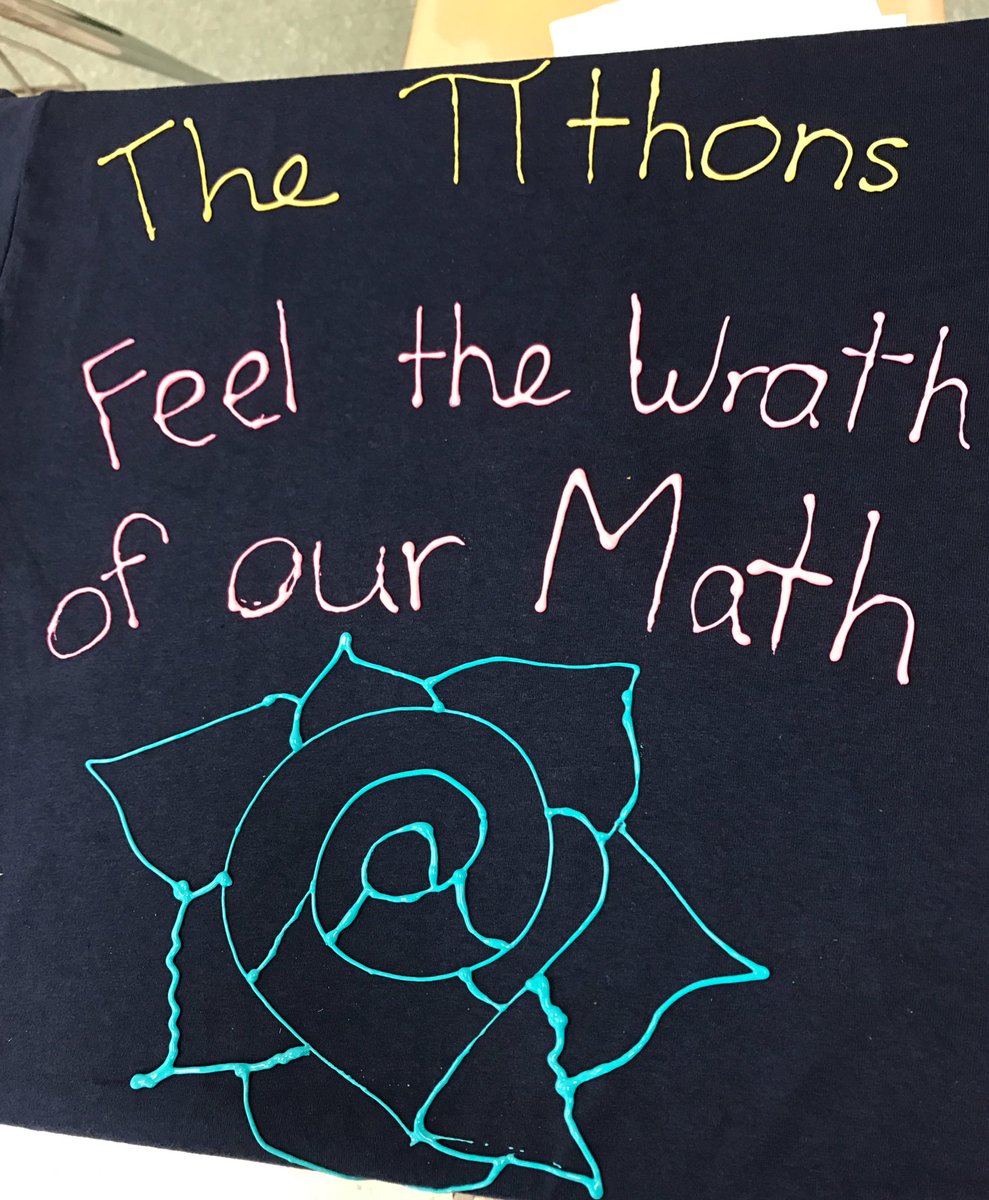 The πthons
Feel the Wrath
of our Math